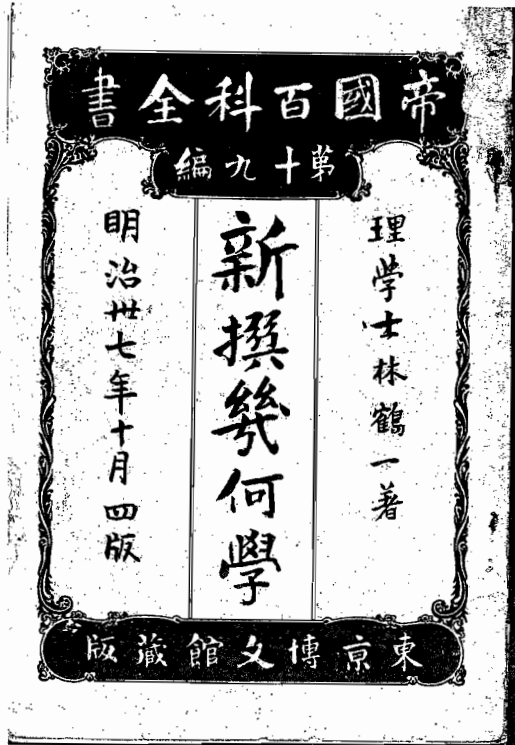 帝國百科全書
第十九編
理学士林鶴一著
新撰幾何學
明治卅七年十月四版
東京博文館蔵版